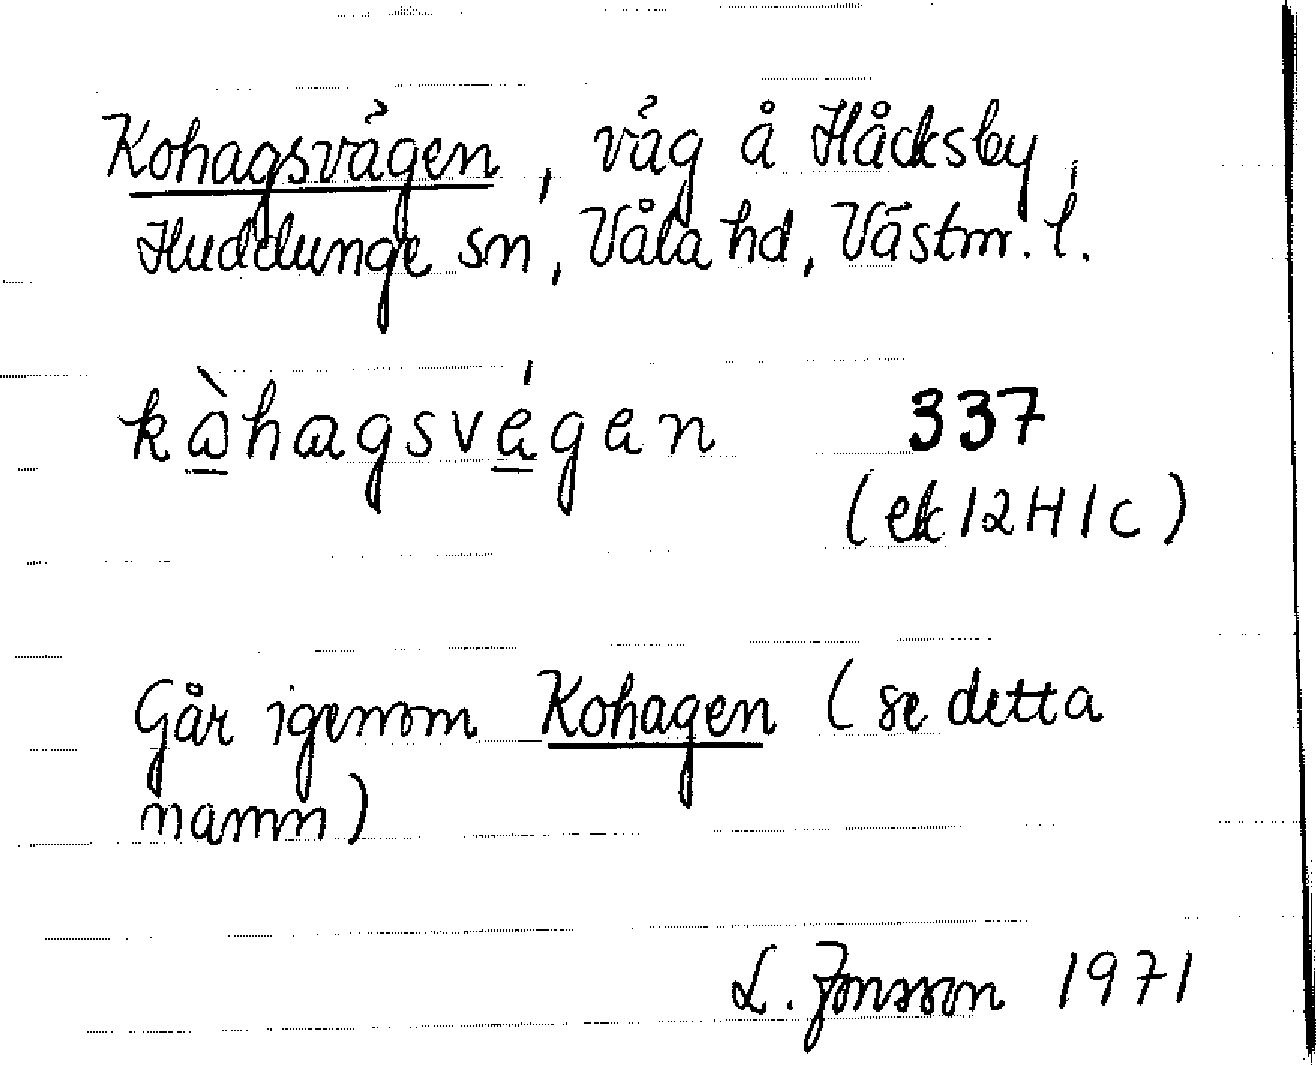 Kohagsvägen, väg å Håcksby,
Huddunge sn, Våla hd, Västm. l.
kòhagsvégen 337
(ek 12H1c)
Går igenom Kohagen (se detta
namn)
L. Jonsson 1971